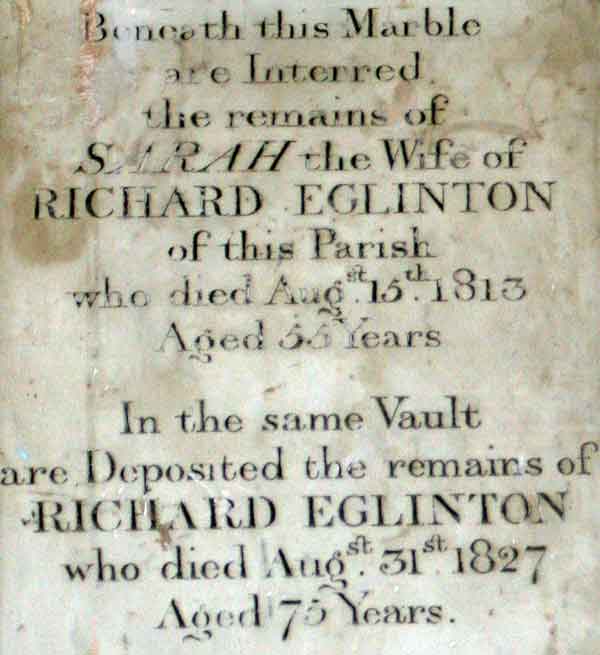 Beneath this Marble
are Interred
the remains of
SARAH the Wife of
RICHARD EGLINTON
of this Parish
who died Augst. 15th. 1813
Aged 55 Years
In the same Vault
are Deposited the remains of
RICHARD EGLINTON
who died Augst. 31st. 1827
Aged 75 Years.